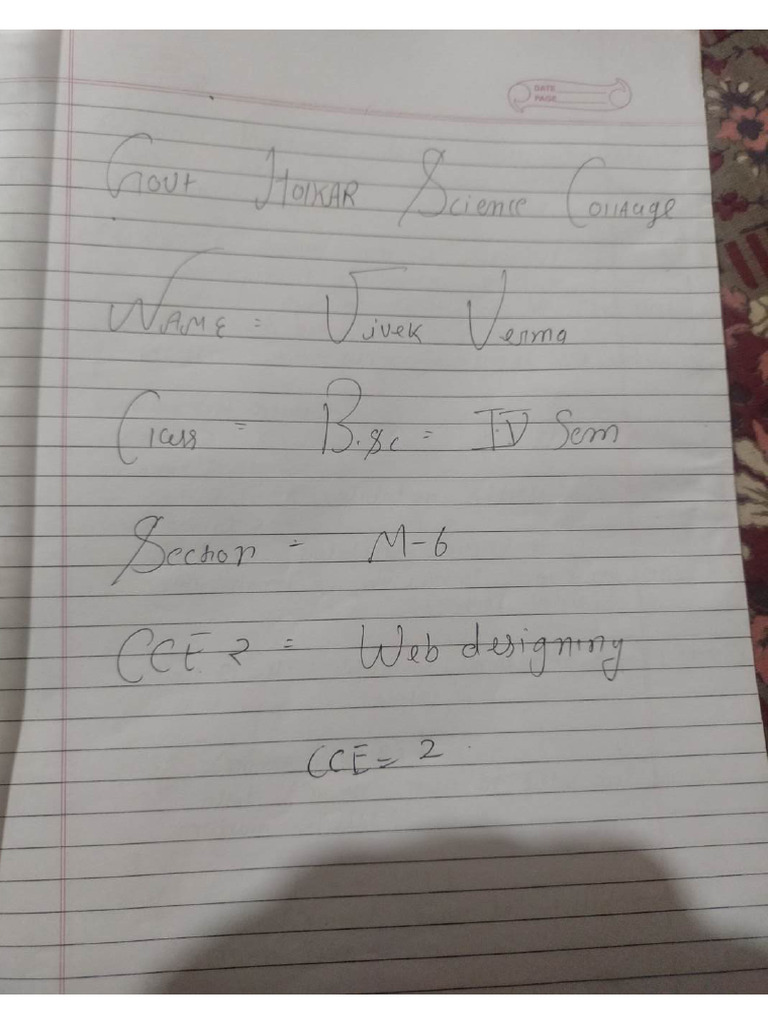 DATE
PAGE
Govt HolKAR Science Collauge
NAME = Vivek Verma
Class = B.sc = IV Sem
Section = M-6
CCE 2 = Web designing
CCE = 2